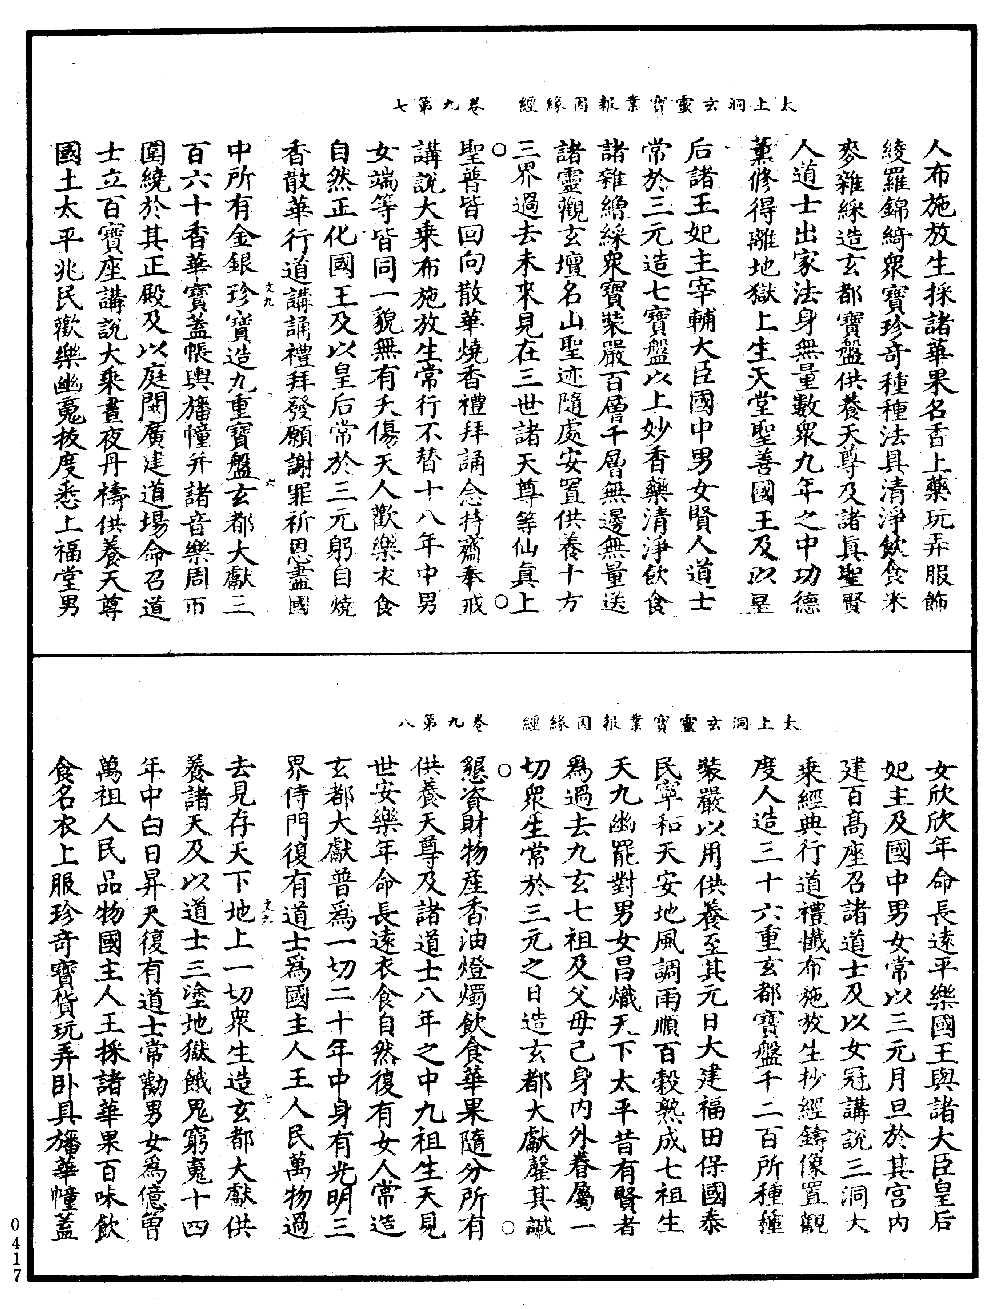 太上洞玄靈寶業報因緣經　卷九第七
人布施放生採諸華果名香上藥玩弄服飾
綾羅錦綺衆寶珍奇種種法具清淨飲食米
麥雜綵造玄都寶盤供養天尊及諸真聖賢
人道士出家法身無量數衆九年之中功德
薰修得離地獄上生天堂聖善國王及以皇
后諸王妃主宰輔大臣國中男女賢人道士
常於三元造七寶盤以上妙香藥清淨飲食
諸雜繒綵衆寶裝嚴百層千層無邊無量送
諸靈觀玄壇名山聖迹隨處安置供養十方
三界過去未來見在三世諸天尊等仙真上
聖普皆回向散華燒香禮拜誦念持齋奉戒
講說大乘布施放生常行不替十八年中男
女端等皆同一貌無有夭傷天人歡樂衣食
自然正化國王及以皇后常於三元躬自燒
香散華行道講誦禮拜發願謝罪祈恩盡國
中所有金銀珍寶造九重寶盤玄都大獻三
百六十香華寶蓋帳輿旛幢并諸音樂周帀
圍繞於其正殿及以庭開廣建道場命召道
士立百寶座講說大乘晝夜丹禱供養天尊
國土太平兆民歡樂幽䰟披度悉上福堂男
太上洞玄靈寶業報因緣經　卷九第八
女欣欣年命長遠平樂國王與諸大臣皇后
妃主及國中男女常以三元月旦於其宮內
建百高座召諸道士及以女冠講說三洞大
乘經典行道禮懺布施放生抄經鑄像置觀
度人造三十六重玄都寶盤千二百所種種
裝嚴以用供養至其元日大建福田保國泰
民寧和天安地風調雨順百穀熟成七祖生
天九幽罷對男女昌熾天下太平昔有賢者
爲過去九玄七祖及父母己身內外眷屬一
切衆生常於三元之日造玄都大獻罄其誠
懇資財物產香油燈燭飲食華果隨分所有
供養天尊及諸道士八年之中九祖生天見
世安樂年命長遠衣食自然復有女人常造
玄都大獻普爲一切二十年中身有光明三
界侍門復有道士爲國主人王人民萬物過
去見存天下地上一切衆生造玄都大獻供
養諸天及以道士三塗地獄餓鬼窮䰟十四
年中白日昇天復有道士常勸男女爲億曾
萬祖人民品物國主人王採諸華果百味飲
食名衣上服珍奇寶貨玩弄卧具旛華幢蓋
0417